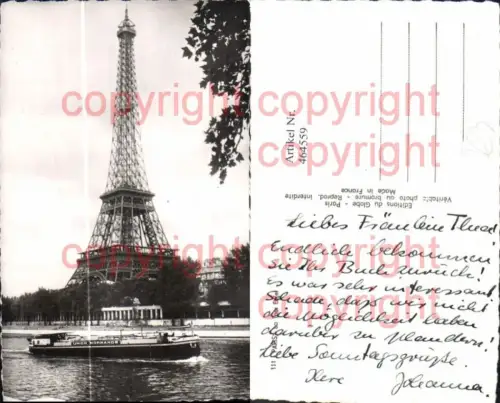 copyright copyright
copyright copyright
Artikel Nr.
464559
Véritable photo au bromure - Reprod. interdite
Editions du Globe - Paris
Made in France
Liebes Fräulein
Endlich bekommen
Sie Ihr Buch zurück!
Es war sehr interessant
Schade, dass wir nicht
die Möglichkeit haben
darüber zu plaudern!
Liebe Sonntagsgrüße.
Johanna.